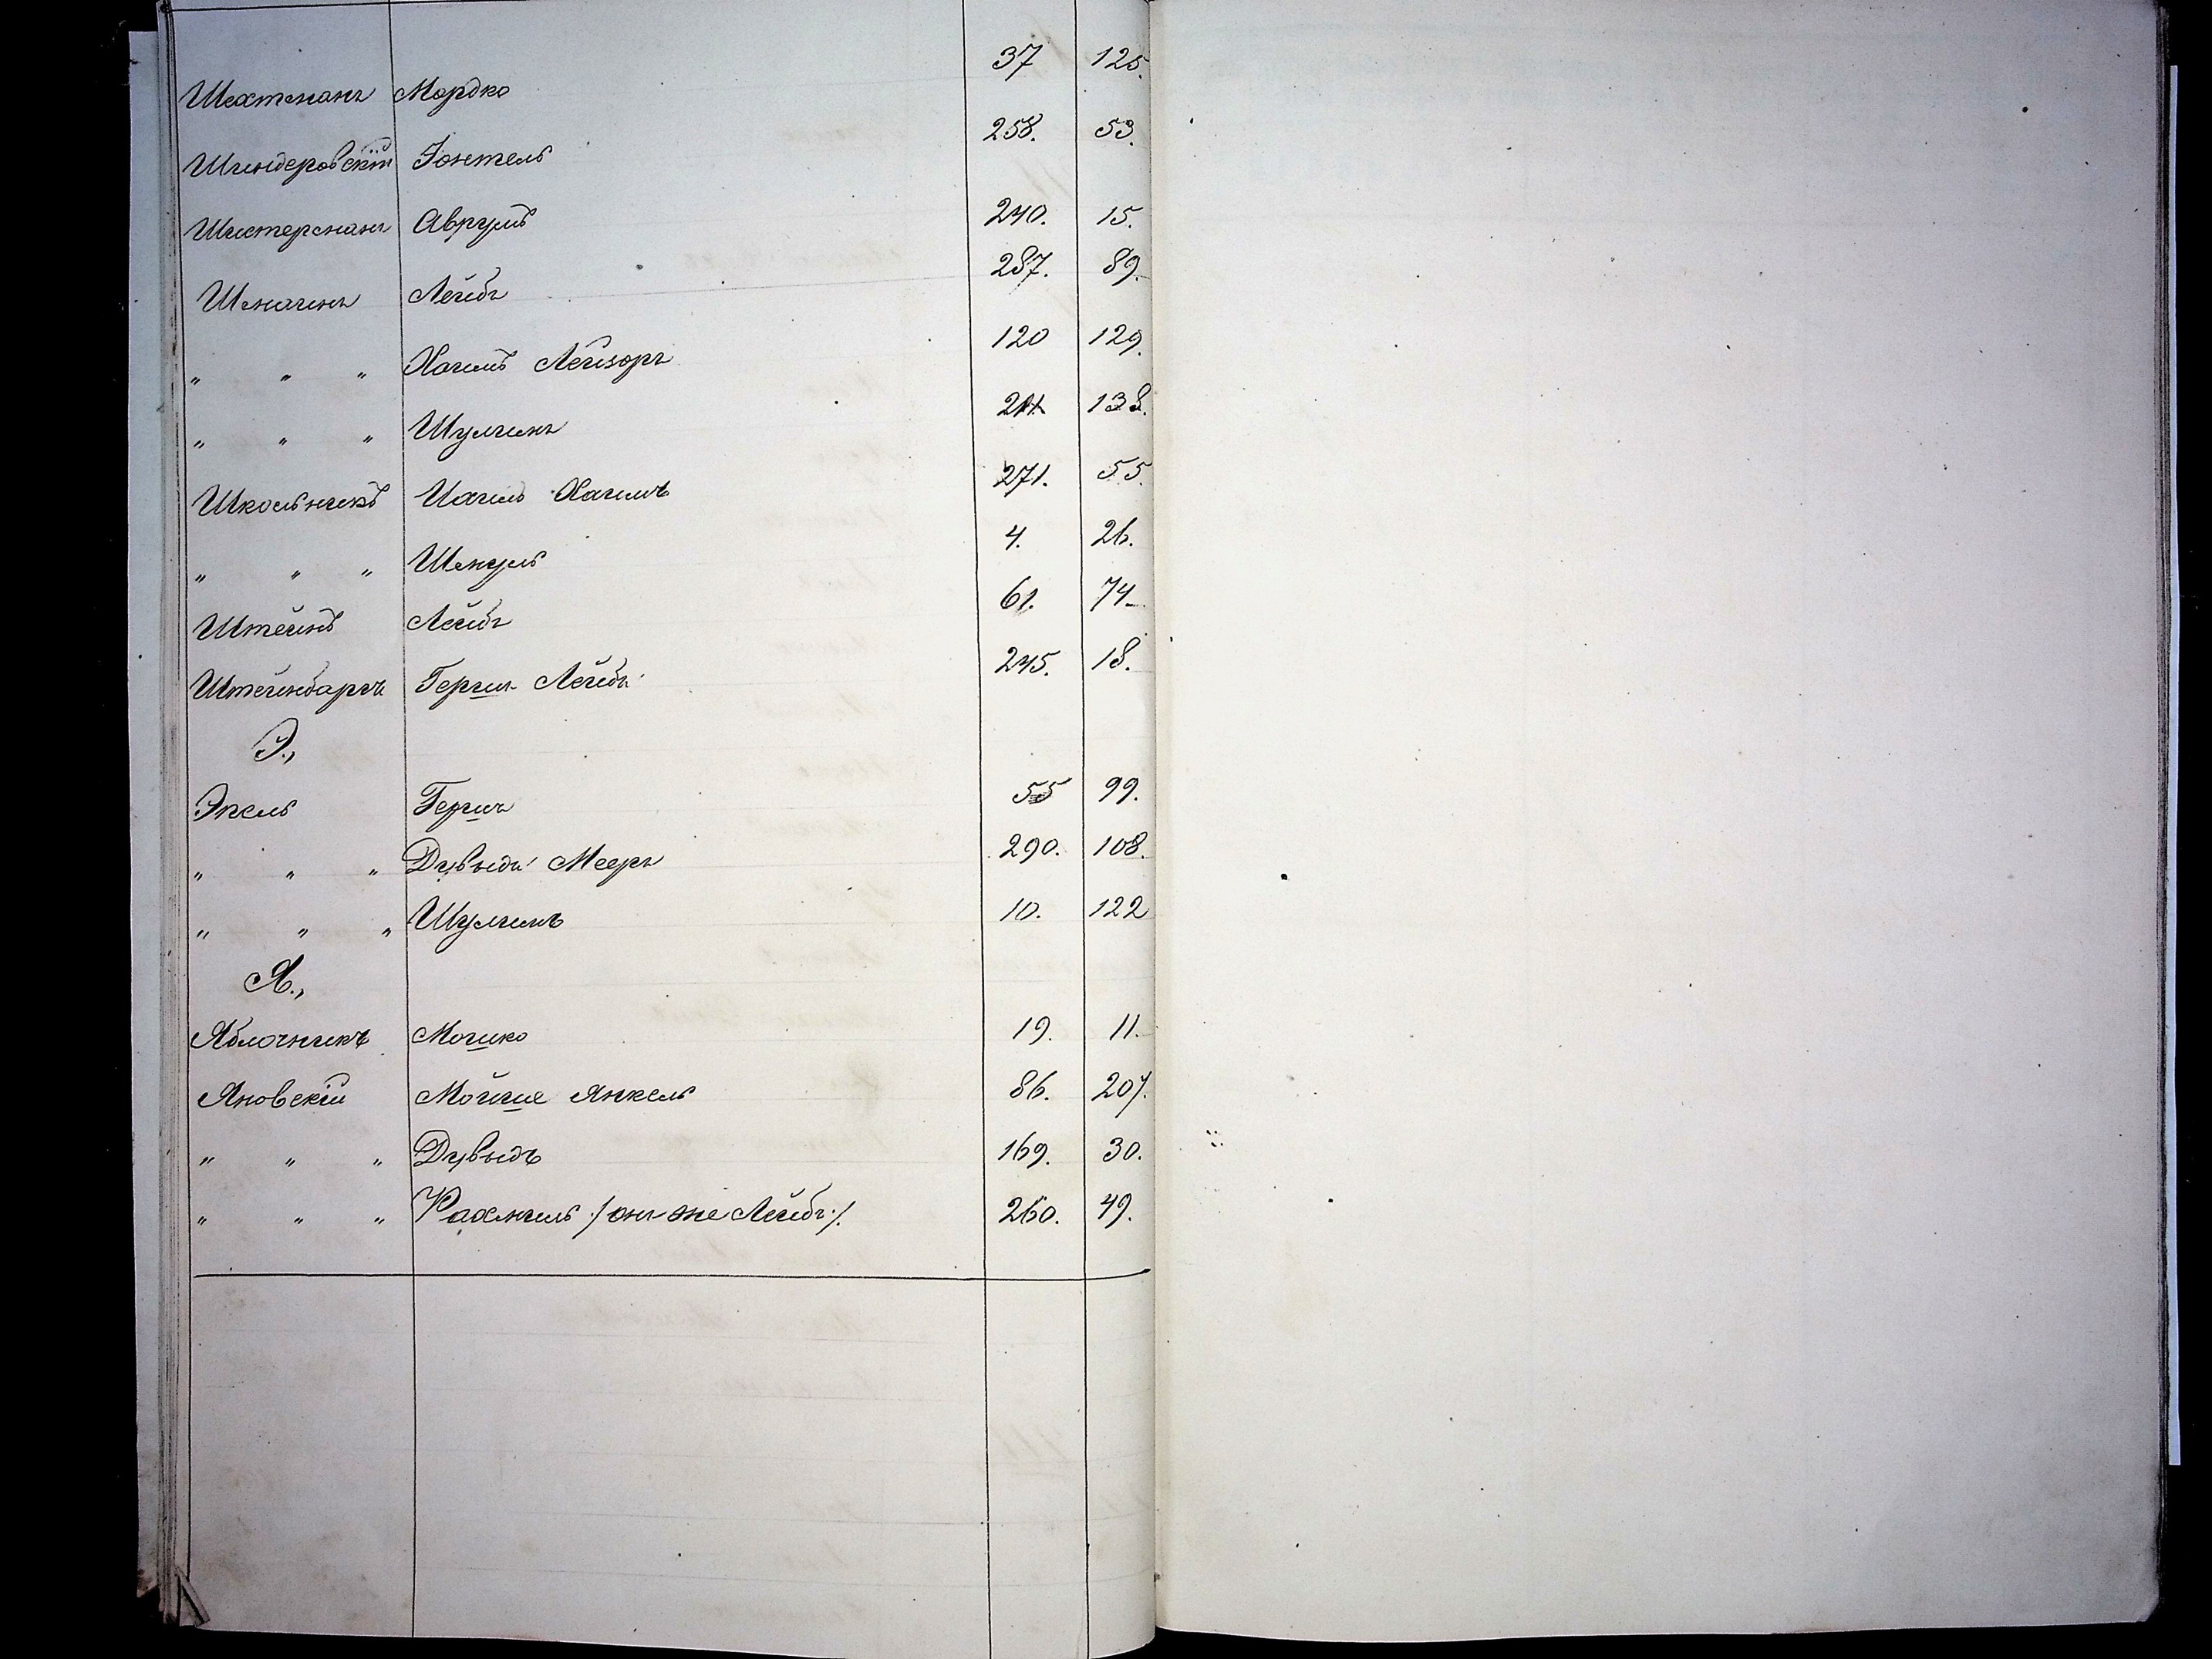 Шехтманъ Мордко 37 125.
Шиндеровскій Іонтель 258. 53.
Шистерманъ Аврумъ 240. 15.
Шмагинъ Лейбъ 287. 89.
„ „ „ Хаимъ Лейзоръ 120 129.
„ „ „ Шулимъ 138.
Школьникъ Ихиль Хаимъ 271. 55.
„ „ „ Шмуль 4. 26.
Штейнъ Лейбъ 61. 74
Штейнбаргъ Гершъ Лейбъ 245. 18.
Э.,
Эпель Гершъ 55 99.
„ „ „ Дувыдъ Мееръ 290. 108.
„ „ „ Шулимъ 10. 122
Я.,
Яблочникъ Мошко 19. 11.
Яновскій Мойше Янкель 86. 207.
„ „ „ Дувыдъ 169. 30.
„ „ „ Рахмиль /онъ же Лейбъ/. 260. 49.